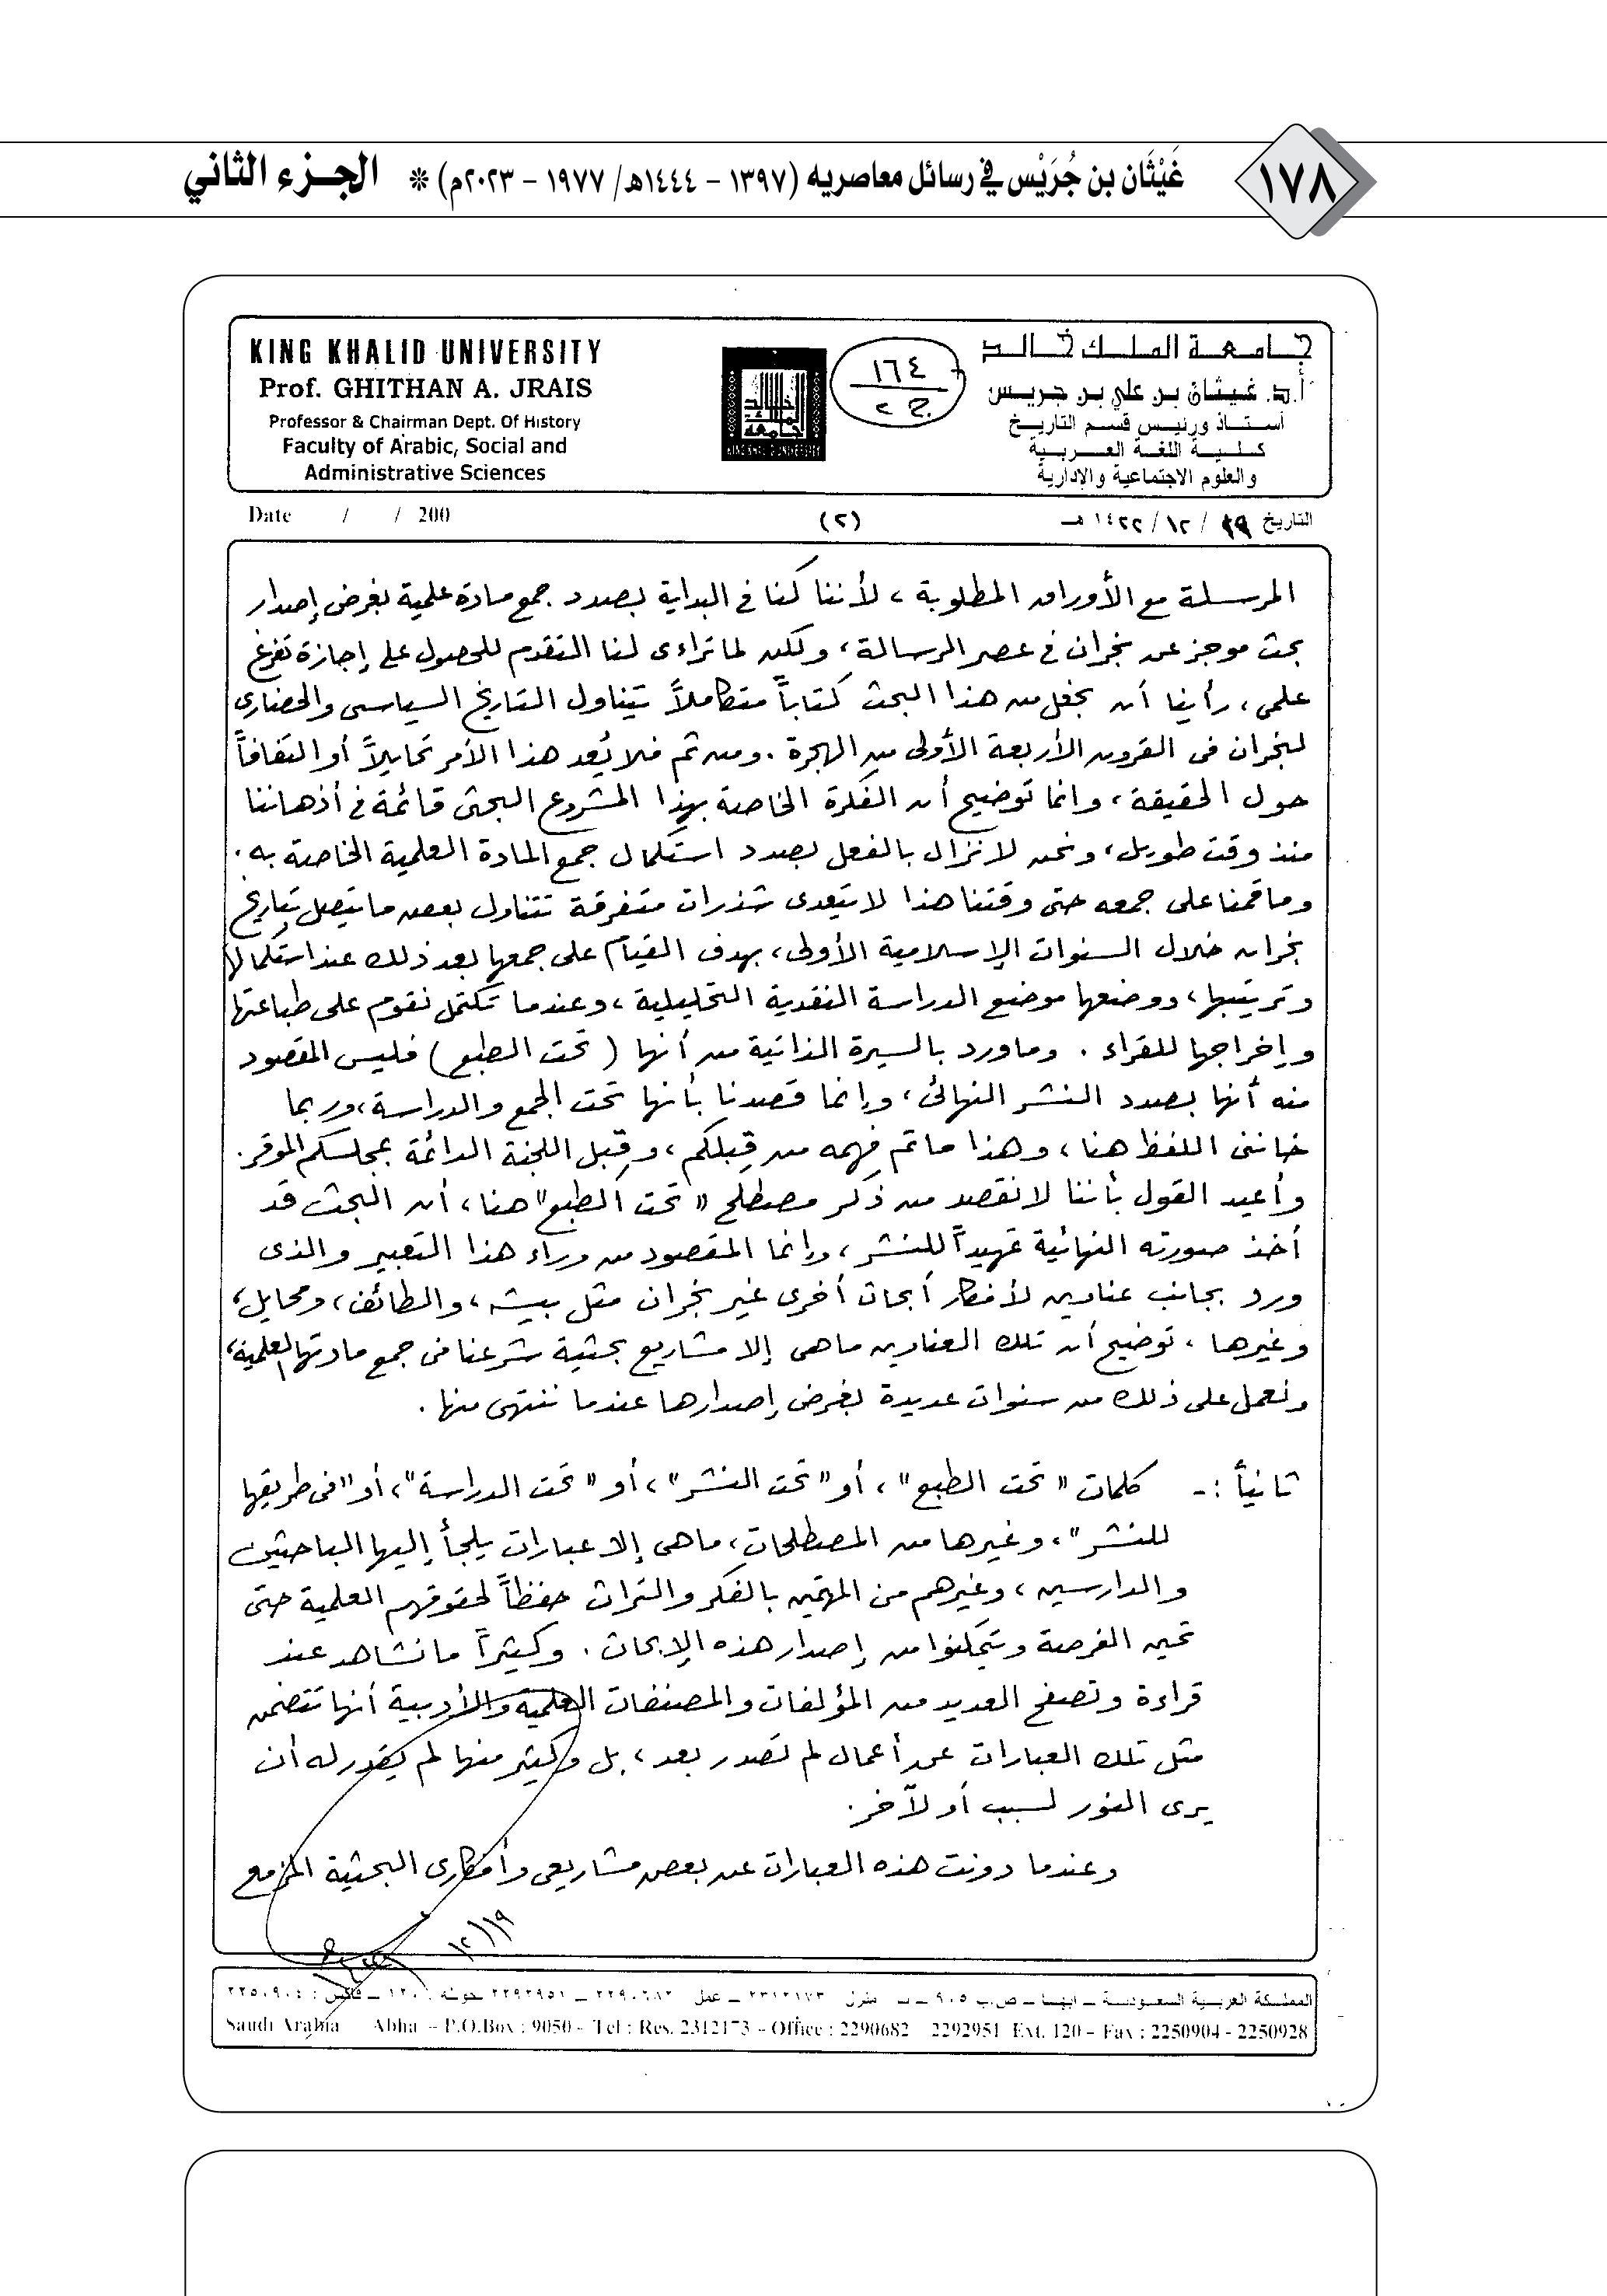 ١٧٨
غَيْثَان بن جُرَيْس في رسائل معاصريه (١٣٩٧ - ١٤٤٤هـ/ ١٩٧٧ - ٢٠٢٣م) * الجزء الثاني
جامعة الملك خالد
أ.د. غيثان بن علي بن جريس
أستاذ ورئيس قسم التاريخ
كلية اللغة العربية
والعلوم الاجتماعية والإدارية
١٦٤
ج ٢
KING KHALID UNIVERSITY
Prof. GHITHAN A. JRAIS
Professor & Chairman Dept. Of History
Faculty of Arabic, Social and
Administrative Sciences
التاريخ ١٩ / ١٢ / ١٤٢٢ هـ
(٢)
Date / / 200
المرسلة مع الأوراق المطلوبة، لأننا كنا في البداية بصدد جمع مادة علمية بغرض إصدار
بحث موجز عن نجران في عصر الرسالة، ولكن لما تراءى لنا التقدم للحصول على إجازة تفرغ
علمي، رأينا أن نجعل من هذا البحث كتاباً متكاملاً يتناول التاريخ السياسي والحضاري
لنجران في القرون الأربعة الأولى من الهجرة. ومن ثم فلا يُعد هذا الأمر تحايلاً أو التفافاً
حول الحقيقة، وانما توضيح أن الفكرة الخاصة بهذا المشروع البحثي قائمة في أذهاننا
منذ وقت طويل، ونحن لا نزال بالفعل بصدد استكمال جمع المادة العلمية الخاصة به.
وما قمنا على جمعه حتى وقتنا هذا لا يتعدى شذرات متفرقة تتناول بعض ما يتصل بتاريخ
نجران خلال السنوات الإسلامية الأولى، بهدف القيام على جمعها بعد ذلك عند استكمالها
وترتيبها، ووضعها موضع الدراسة النقدية التحليلية، وعندما تكتمل نقوم على طباعتها
وإخراجها للقراء. وما ورد بالسيرة الذاتية من أنها (تحت الطبع) فليس المقصود
منه أنها بصدد النشر النهائي، وإنما قصدنا بأنها تحت الجمع والدراسة، وربما
خانني اللفظ هنا، وهذا ما تم فهمه من قِبلكم، وقِبل اللجنة الدائمة بمجلسكم الموقر.
وأعيد القول بأننا لا نقصد من ذكر مصطلح "تحت الطبع" هنا، أن البحث قد
أخذ صورته النهائية تمهيداً للنشر، وإنما المقصود من وراء هذا التعبير والذي
ورد بجانب عناوين لأفكار أبحاث أخرى غير نجران مثل بيشه، والطائف، ومحايل،
وغيرها، توضيح أن تلك العناوين ما هي إلا مشاريع بحثية شرعنا في جمع مادتها العلمية،
ونعمل على ذلك من سنوات عديدة بغرض إصدارها عندما ننتهي منها.
ثانياً :- كلمات "تحت الطبع"، أو "تحت النشر"، أو "تحت الدراسة"، أو "في طريقها
للنشر"، وغيرها من المصطلحات، ما هي إلا عبارات يلجأ إليها الباحثين
والدارسين، وغيرهم من المهتمين بالفكر والتراث حفظاً لحقوقهم العلمية حتى
تحين الفرصة ويتمكنوا من إصدار هذه الابحاث. وكثيراً ما نشاهد عند
قراءة وتصفح العديد من المؤلفات والمصنفات العلمية والأدبية أنها تتضمن
مثل تلك العبارات عن أعمال لم تصدر بعد، بل وكثير منها لم يقدر له أن
يرى النور لسبب أو لآخر.
وعندما دونت هذه العبارات عن بعض مشاريعي وأفكاري البحثية المزمع
١٢/١٩
المملكة العربية السعودية ـ ابها ـ ص.ب ٩٠٥٠ ـ ت منزل ٢٣١٢١٧٣ ـ عمل ٢٢٩٠٦٨٢ ـ ٢٢٩٢٩٥١ تحويلة : ١٢٠ ـ فاكس : ٢٢٥٠٩٠٤
Saudi Arabia Abha - P.O.Box : 9050 - Tel : Res. 2312173 - Office : 2290682 2292951 Ext. 120 - Fax : 2250904 - 2250928